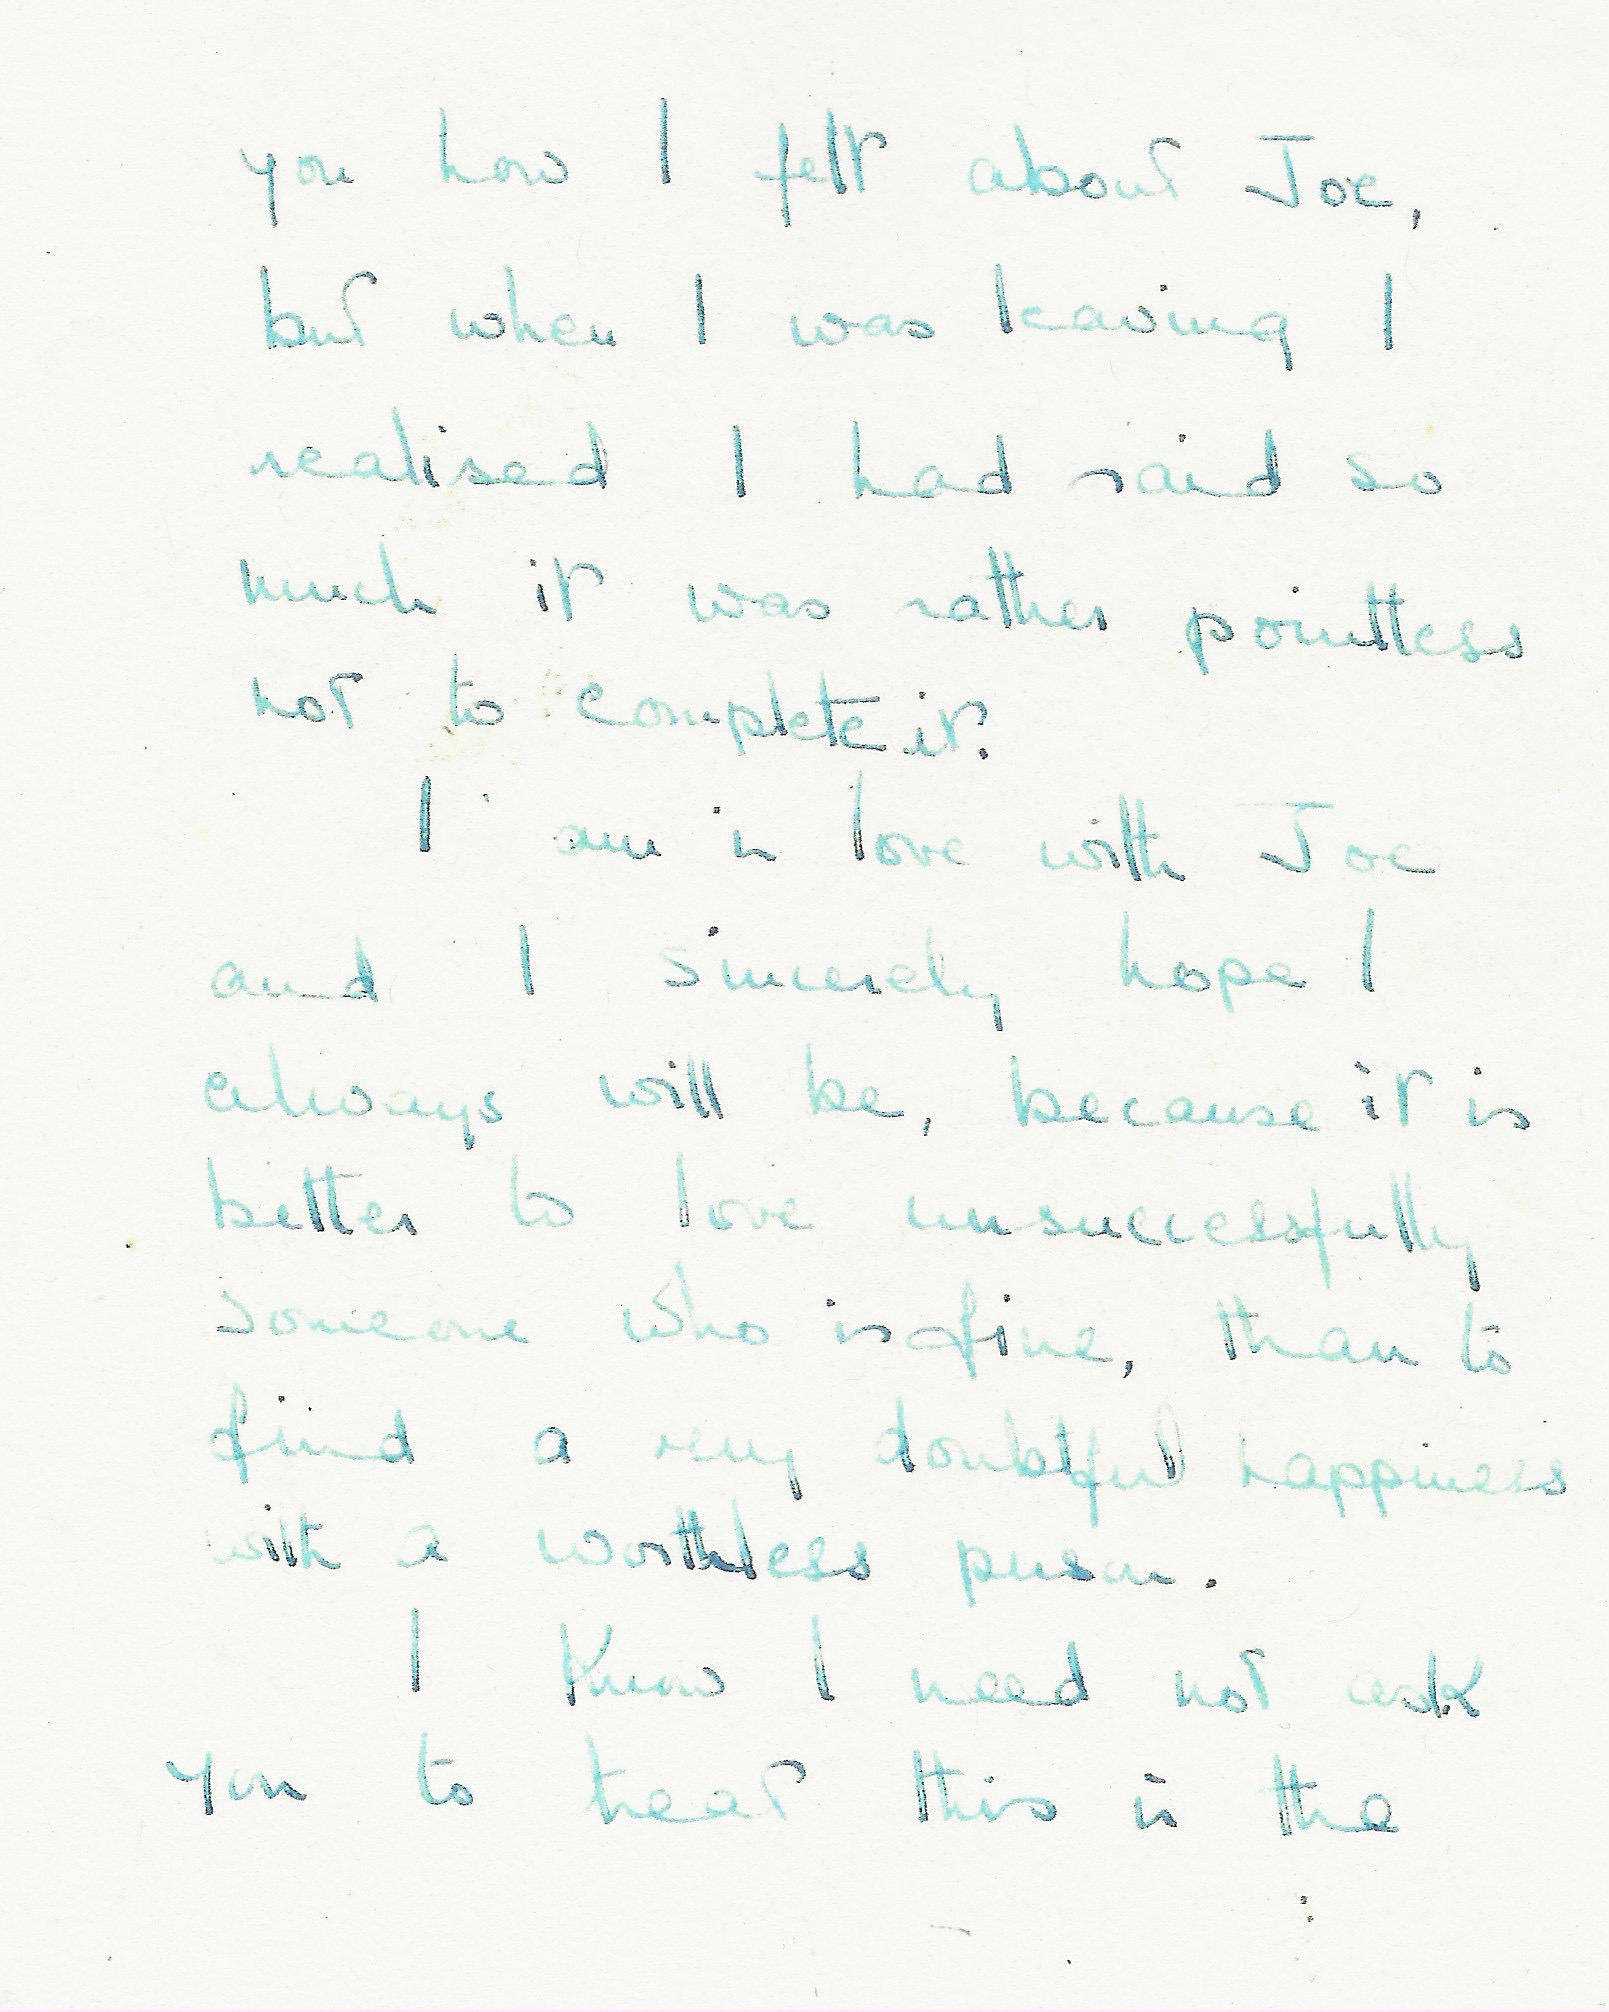 you how I felt about Joe,
but when I was leaving I
realised I had said so
much it was rather pointless
not to complete it.
I am in love with Joe
and I sincerely hope I
always will be, because it is
better to love unsuccessfully
someone who is fine, than to
find a very doubtful happiness
with a worthless person.
I know I need not ask
you to treat this in the